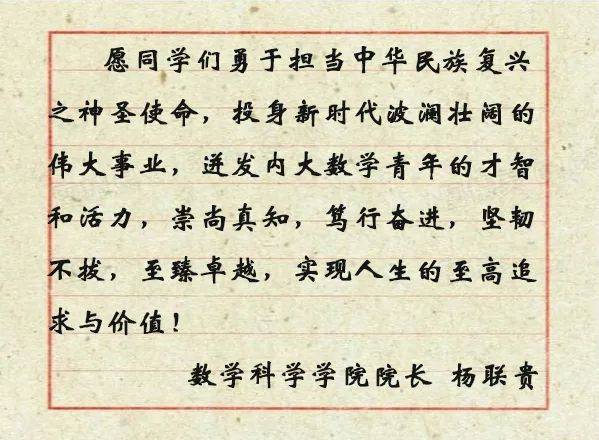 愿同学们勇于担当中华民族复兴
之神圣使命，投身新时代波澜壮阔的
伟大事业，迸发内大数学青年的才智
和活力，崇尚真知，笃行奋进，坚韧
不拔，至臻卓越，实现人生的至高追
求与价值！
数学科学学院院长 杨联贵